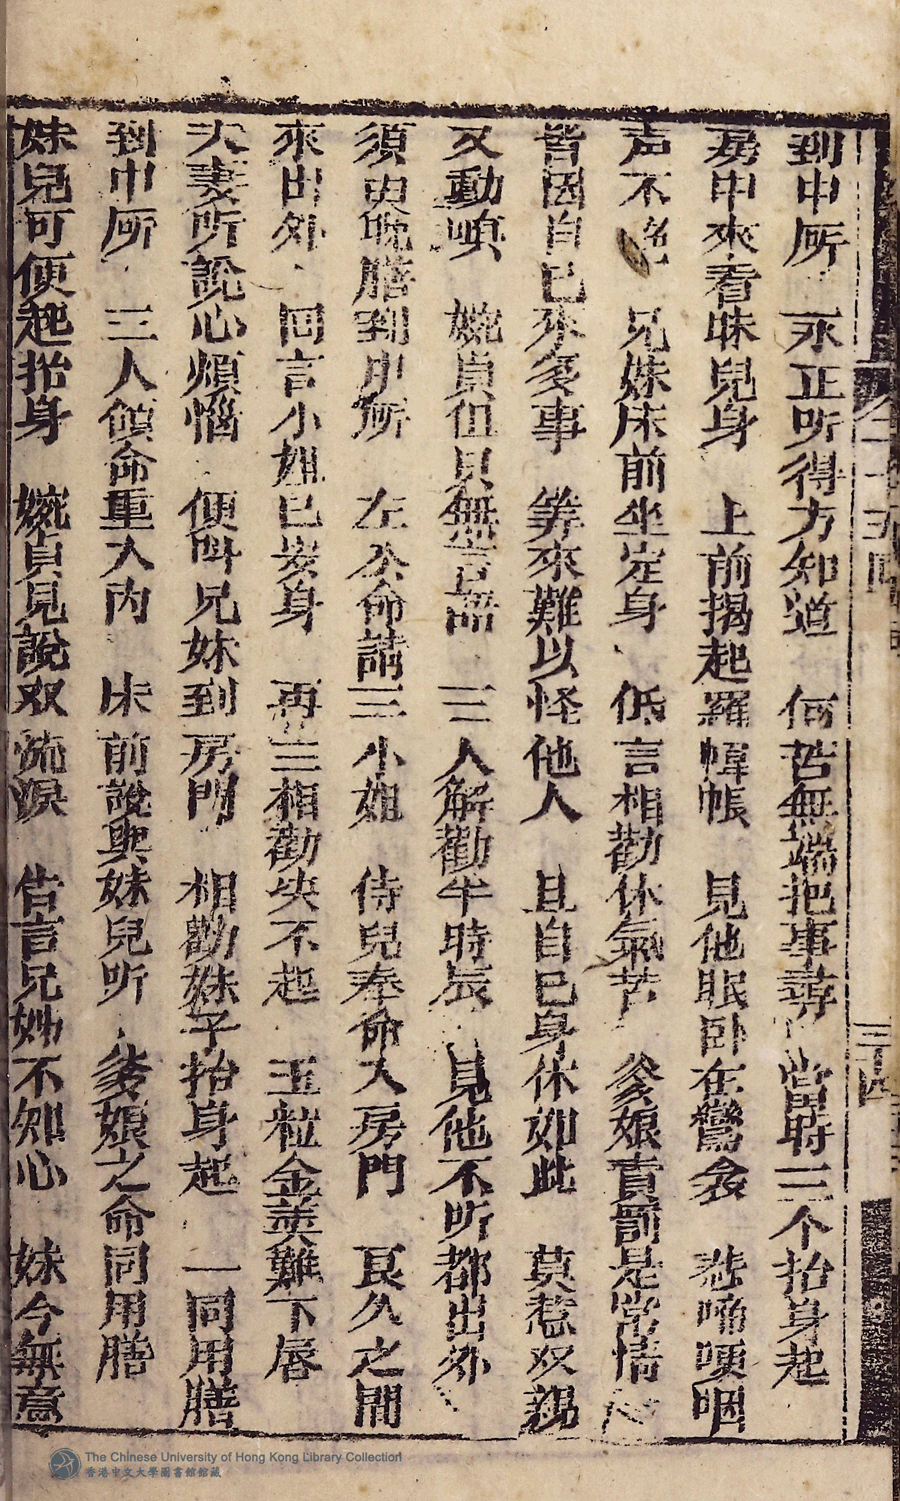 到中所 永正听得方知道 何苦無端把事尋 當時三个抬身起
房中來看妹兒身 上前揭起羅幃帳 見他眠卧在鸞衾 悲啼哽咽
声不絶 兄妹床前坐定身 低言相勸休氣苦 爹娘責罰是常情
皆因自己來多事 筭來難以怪他人 且自已身休如此 莫惹双親
又動嗔 婉貞但只無言語 三人解勸半時辰 見他不听都出外
須臾晚膳到中所 左公命請三小姐 侍兒奉命入房門 良久之間
來出外 回言小姐已安身 再三相勸央不起 玉粒金英難下唇
夫妻听說心煩惱 便呌兄妹到房門 相勸妹子抬身起 一同用膳
到中所 三人領命重入內 床前說與妹兒听 爹娘之命同用膳
妹兒可便起抬身 婉貞見說双流淚 告言兄妣不知心 妹今無意
二十五回
三十四
The Chinese University of Hong Kong Library Collection
香港中文大學圖書館館藏